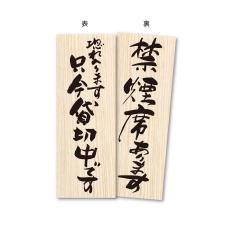 表
恐れ入ります
只今貸切中です
裏
禁煙席あります